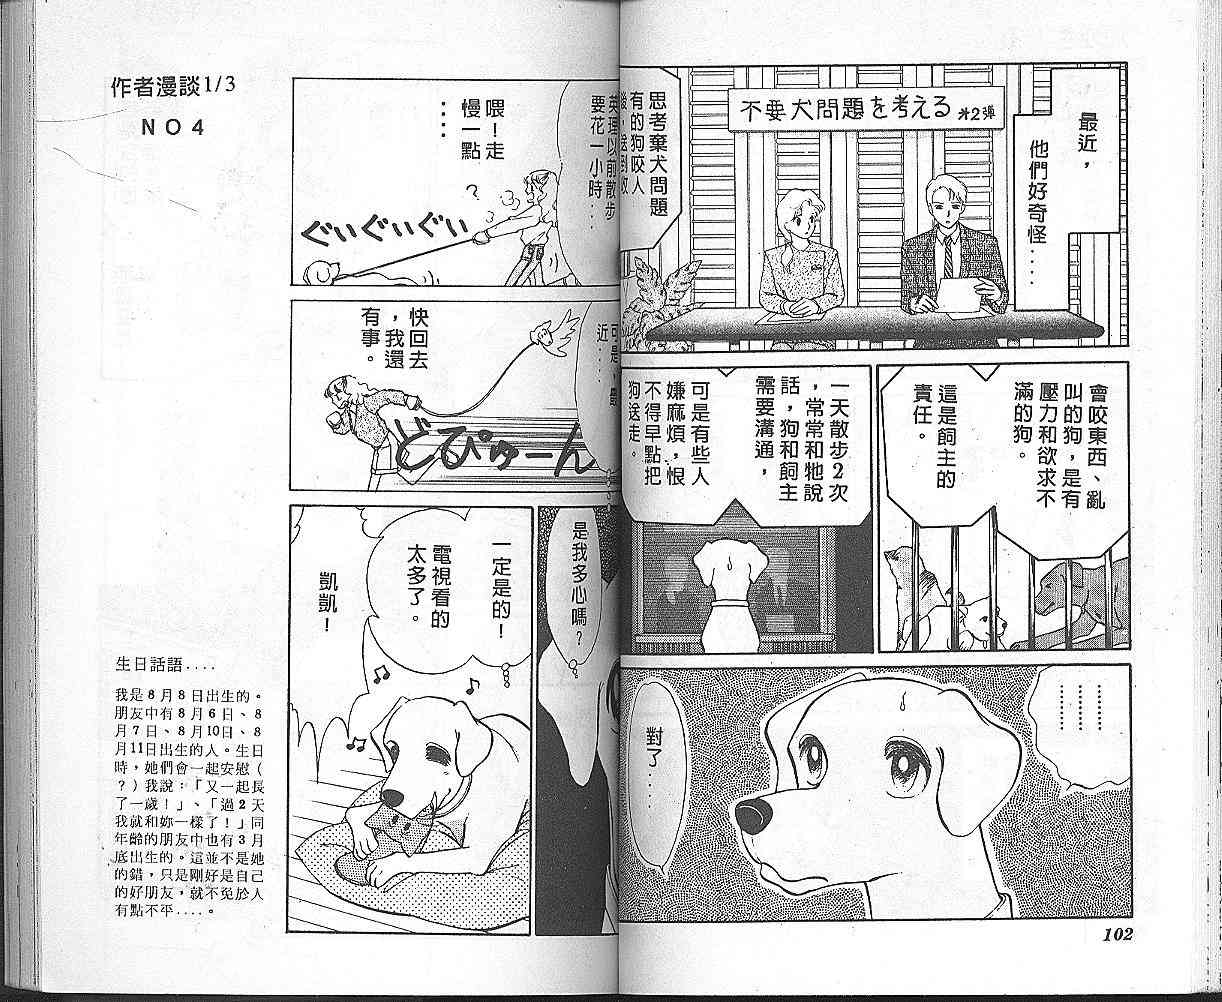 最近，
他們好奇怪‥‥
不要犬問題を考える 才2弾
思考棄犬問題
有的狗咬人
會咬東西、亂
叫的狗，是有
壓力和欲求不
滿的狗。
這是飼主的
責任。
一天散步2次
，常常和牠說
話，狗和飼主
需要溝通，
可是有些人
嫌麻煩，恨
不得早點把
狗送走。
‥‥‥‥
‥‥‥‥
對了‥‥
102
英理以前散步
要花一小時‥‥
喂！走
慢一點
‥‥
？
ぐいぐいぐい
可是
近‥‥
快回去
，我還
有事。
どぴゅーん
是我多心嗎？
一定是的！
電視看的
太多了。
凱凱！
作者漫談1/3
NO4
生日話語‥‥
我是8月8日出生的。
朋友中有8月6日、8
月7日、8月10日、8
月11日出生的人。生日
時，她們會一起安慰（
？）我說：「又一起長
了一歲！」、「過2天
我就和妳一樣了！」同
年齡的朋友中也有3月
底出生的。這並不是她
的錯，只是剛好是自己
的好朋友，就不免於人
有點不平‥‥。